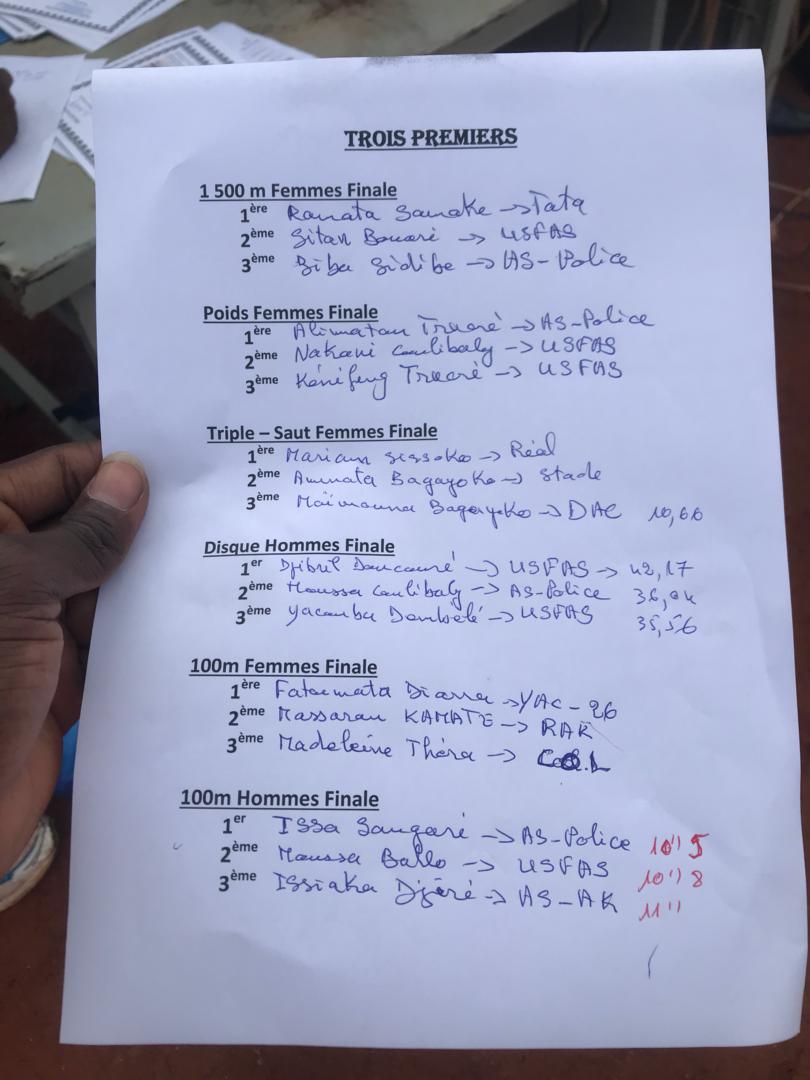 TROIS PREMIERS
1 500 m Femmes Finale
1ère Ramata Samake → Tata
2ème Sitan Bouaré → USFAS
3ème Siba Sidibe → AS-Police
Poids Femmes Finale
1ère Alimatou Traoré → AS-Police
2ème Nakani Coulibaly → USFAS
3ème Kénifeng Traoré → USFAS
Triple – Saut Femmes Finale
1ère Mariam Sissoko → Réal
2ème Aminata Bagayoko → Stade
3ème Maïmouna Bagayoko → DAC 10,60
Disque Hommes Finale
1er Djibril Doucouré → USFAS → 42,17
2ème Moussa Coulibaly → AS-Police
3ème Yacouba Dembélé → USFAS 35,56
100m Femmes Finale
1ère Fatoumata Diarra → YAC-26
2ème Massaran KAMATE → RAK
3ème Madeleine Théra →
100m Hommes Finale
1er Issa Sangaré → AS-Police 10"5
2ème Moussa Ballo → USFAS 10"8
3ème Issiaka → AS-AK 11"